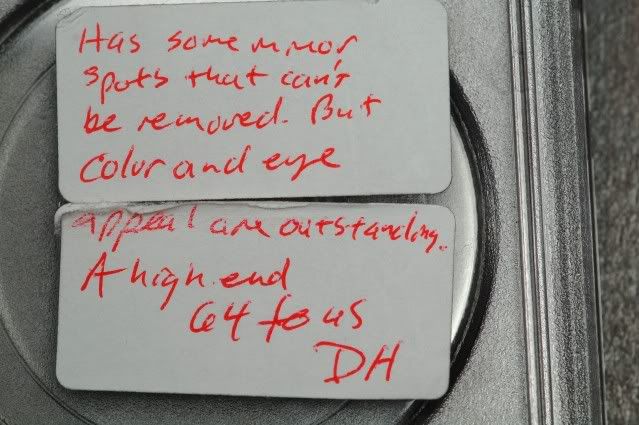 Has some minor
spots that can't
be removed. But
color and eye
appeal are outstanding.
A high end
64 to us
DH